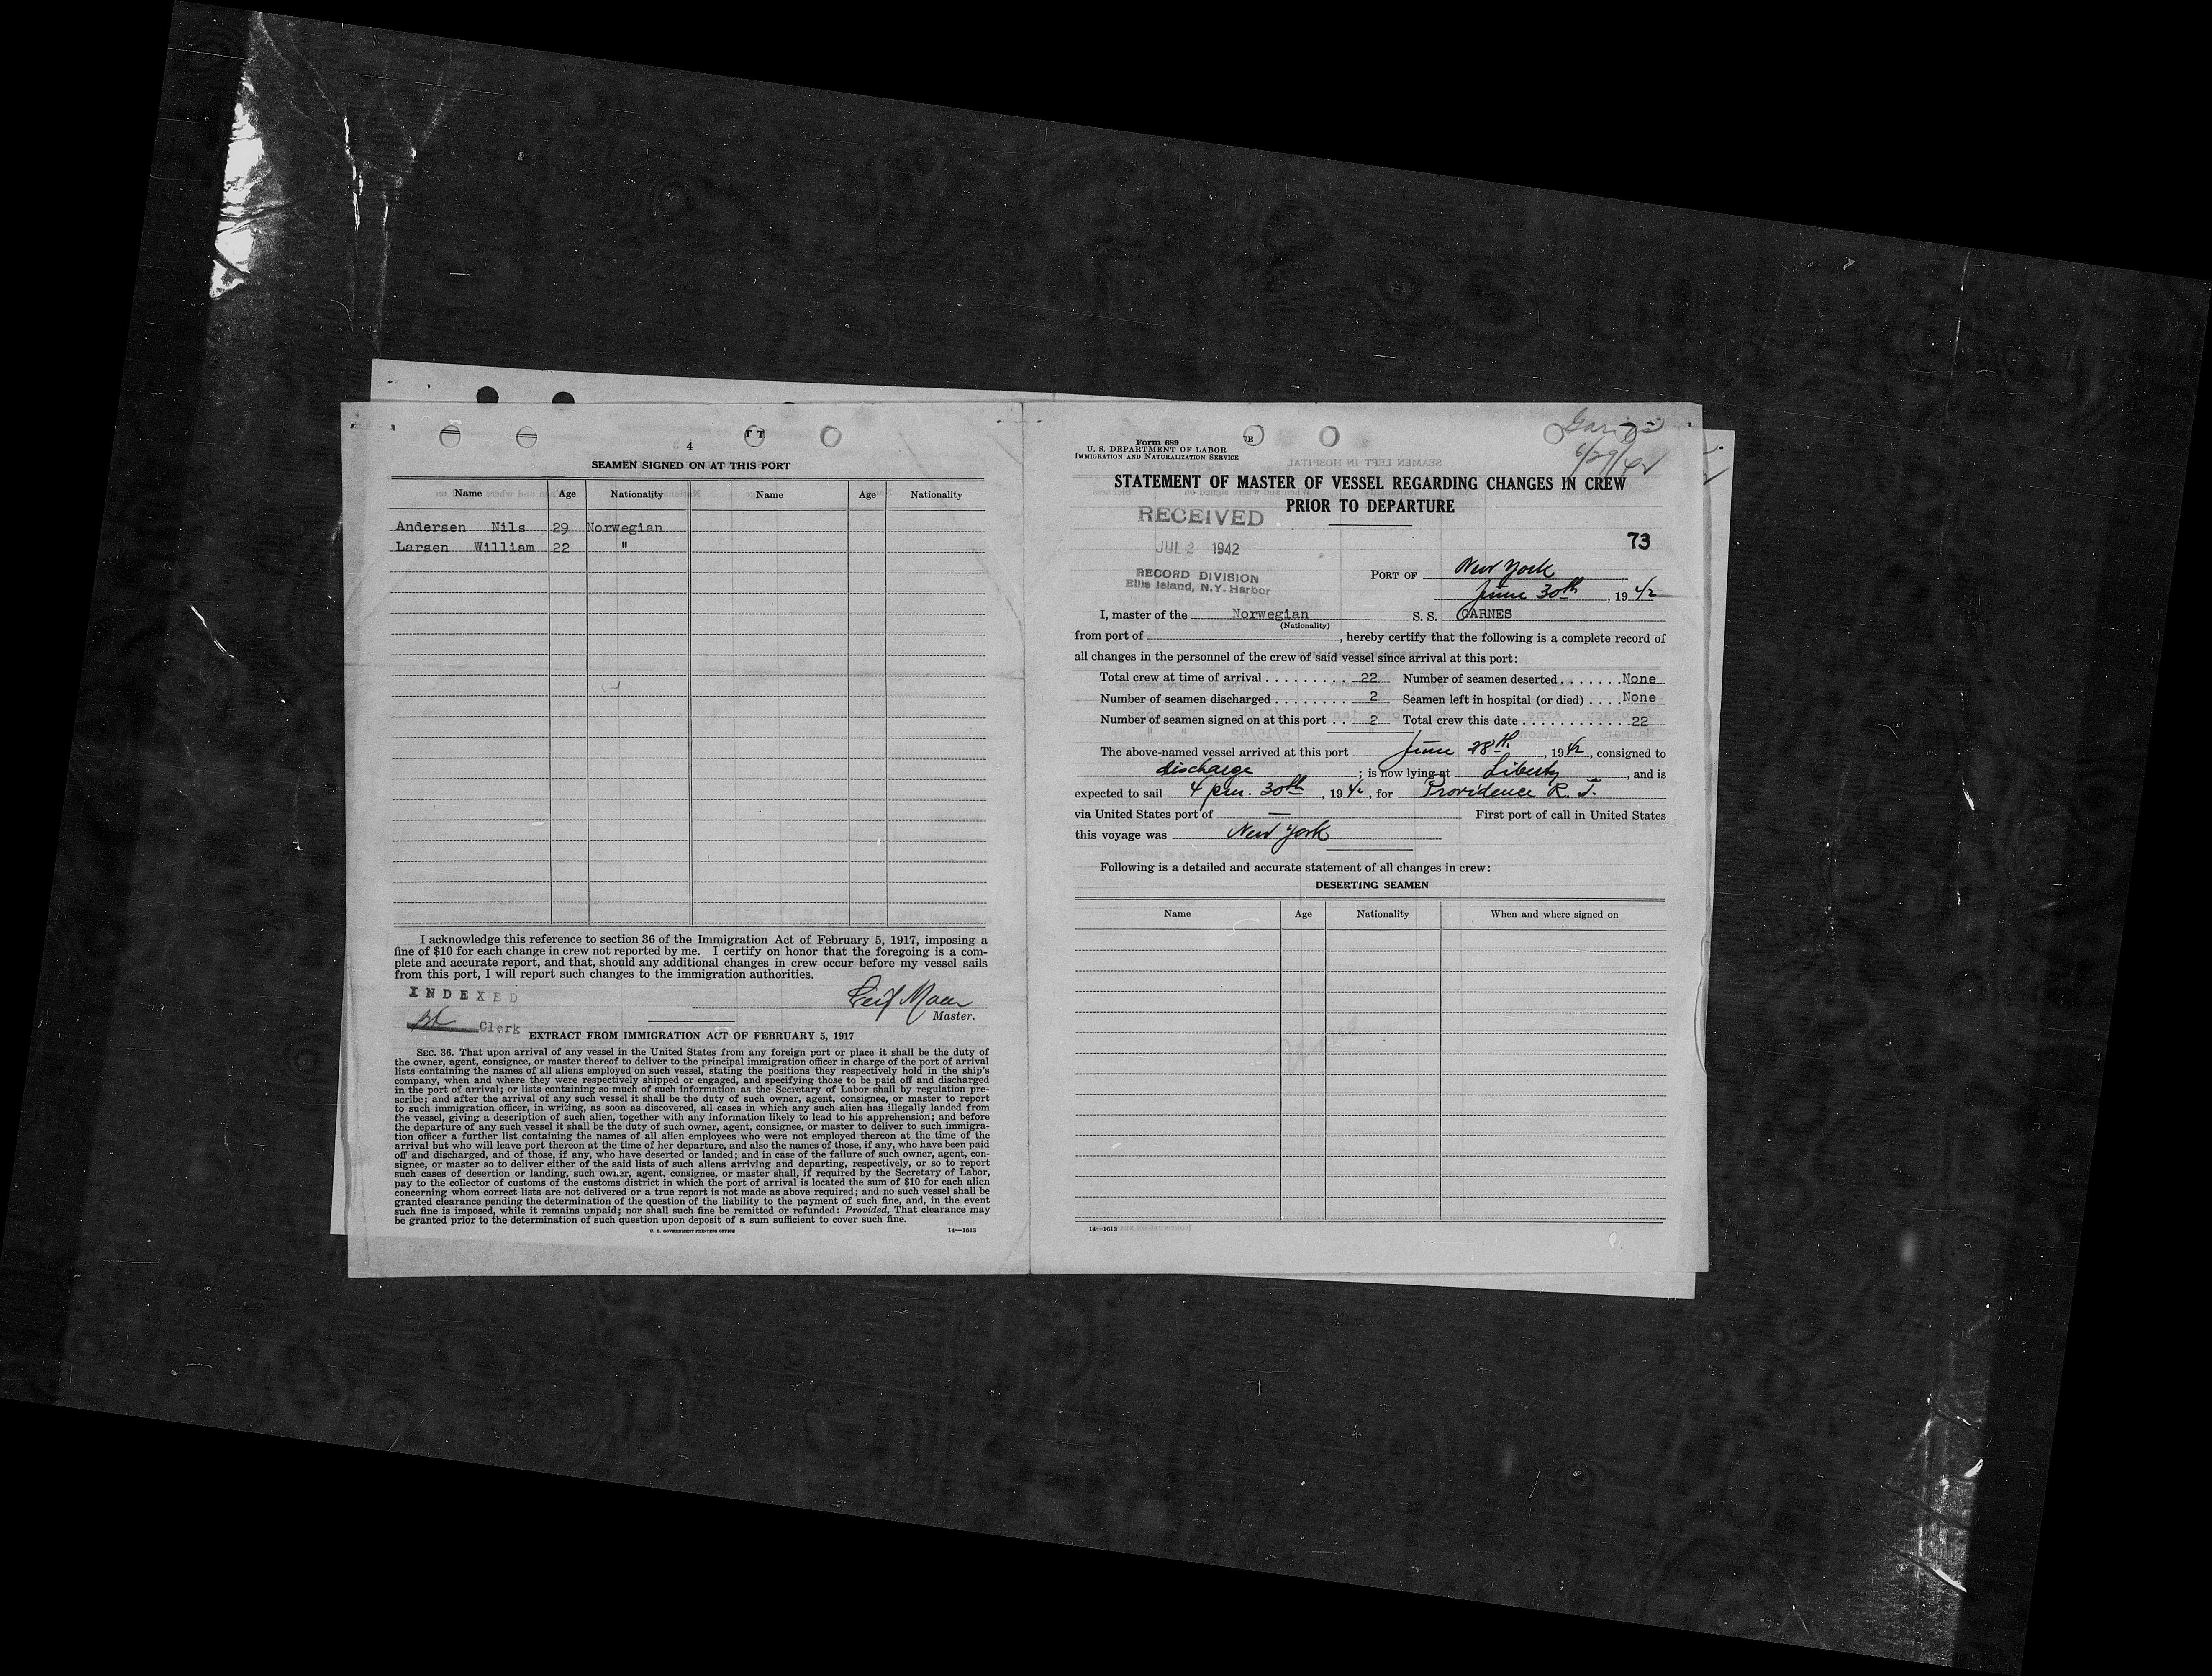 4
SEAMEN SIGNED ON AT THIS PORT
Name Age Nationality Name Age Nationality
Andersen Nils 29 Norwegian
Larsen William 22 "
I acknowledge this reference to section 36 of the Immigration Act of February 5, 1917, imposing a
fine of $10 for each change in crew not reported by me. I certify on honor that the foregoing is a com-
plete and accurate report, and that, should any additional changes in crew occur before my vessel sails
from this port, I will report such changes to the immigration authorities.
INDEXED
Leif
Master.
Clerk
EXTRACT FROM IMMIGRATION ACT OF FEBRUARY 5, 1917
SEC. 36. That upon arrival of any vessel in the United States from any foreign port or place it shall be the duty of
the owner, agent, consignee, or master thereof to deliver to the principal immigration officer in charge of the port of arrival
lists containing the names of all aliens employed on such vessel, stating the positions they respectively hold in the ship's
company, when and where they were respectively shipped or engaged, and specifying those to be paid off and discharged
in the port of arrival; or lists containing so much of such information as the Secretary of Labor shall by regulation pre-
scribe; and after the arrival of any such vessel it shall be the duty of such owner, agent, consignee, or master to report
to such immigration officer, in writing, as soon as discovered, all cases in which any such alien has illegally landed from
the vessel, giving a description of such alien, together with any information likely to lead to his apprehension; and before
the departure of any such vessel it shall be the duty of such owner, agent, consignee, or master to deliver to such immigra-
tion officer a further list containing the names of all alien employees who were not employed thereon at the time of the
arrival but who will leave port thereon at the time of her departure, and also the names of those, if any, who have been paid
off and discharged, and of those, if any, who have deserted or landed; and in case of the failure of such owner, agent, con-
signee, or master so to deliver either of the said lists of such aliens arriving and departing, respectively, or so to report
such cases of desertion or landing, such owner, agent, consignee, or master shall, if required by the Secretary of Labor,
pay to the collector of customs of the customs district in which the port of arrival is located the sum of $10 for each alien
concerning whom correct lists are not delivered or a true report is not made as above required; and no such vessel shall be
granted clearance pending the determination of the question of the liability to the payment of such fine, and, in the event
such fine is imposed, while it remains unpaid; nor shall such fine be remitted or refunded: Provided, That clearance may
be granted prior to the determination of such question upon deposit of a sum sufficient to cover such fine.
U. S. GOVERNMENT PRINTING OFFICE 14—1613
6/29/42
Form 689
U. S. DEPARTMENT OF LABOR
IMMIGRATION AND NATURALIZATION SERVICE
STATEMENT OF MASTER OF VESSEL REGARDING CHANGES IN CREW
PRIOR TO DEPARTURE
RECEIVED
JUL 2 1942
RECORD DIVISION
Ellis Island, N.Y. Harbor
73
PORT OF New York
June 30th, 1942
I, master of the Norwegian S. S. GARNES
(Nationality)
from port of , hereby certify that the following is a complete record of
all changes in the personnel of the crew of said vessel since arrival at this port:
Total crew at time of arrival . . . . . . . . . 22 Number of seamen deserted . . . . . . . None
Number of seamen discharged . . . . . . . . 2 Seamen left in hospital (or died) . . . . None
Number of seamen signed on at this port . . 2 Total crew this date . . . . . . . . . . . . 22
The above-named vessel arrived at this port June 28th, 1942, consigned to
discharge ; is now lying at Liberty, and is
expected to sail 4 pm. 30th, 1942, for Providence R. I.
via United States port of — First port of call in United States
this voyage was New York
Following is a detailed and accurate statement of all changes in crew:
DESERTING SEAMEN
Name Age Nationality When and where signed on
14—1613